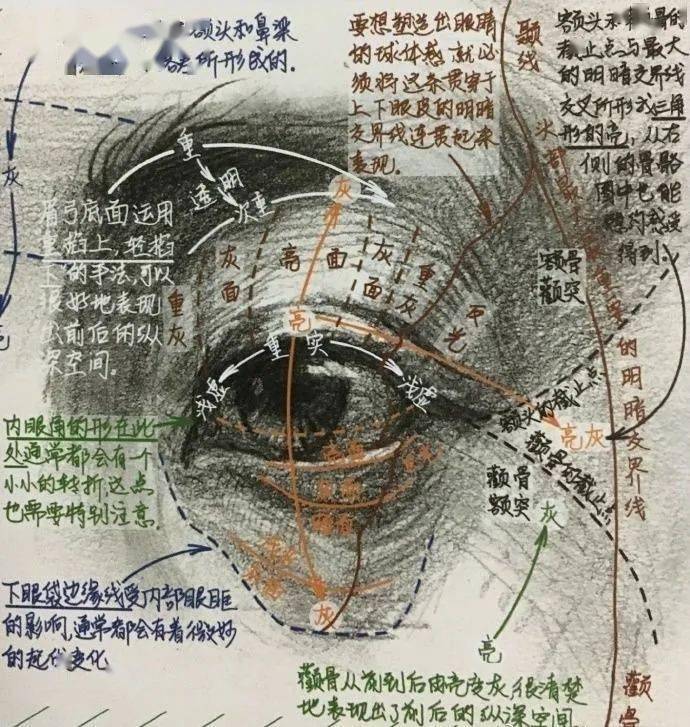 额头和鼻梁
所形成的.
要想塑造出眼睛
的球体感,就必
须将这条贯穿于
上下眼皮的明暗
交界线连贯起来
表现.
颞线
额头和
截止点与最大
的明暗交界线
交叉所形成三角
形的亮,从右
侧的骨骼
图中也能
感受
得到.
灰
亮
重
透明
次重
灰
眉弓底面运用
重掐上,轻掐
下的手法,可以
很好地表现
出前后的纵
深空间.
重灰
灰面
亮面
灰面
重灰
反光
额骨
颧突
的明暗交界线
亮
重实
浅虚
浅虚
额头的截止点
亮灰
颧骨的截止点
颧骨
额突
灰
亮
内眼角的形在此
处通常都会有一个
小小的转折,这点
也需要特别注意.
下眼袋边缘线受内部眼眶
的影响,通常都会有着很微妙
的起伏变化
灰
颧骨从前到后由亮变灰,很清楚
地表现出了前后的纵深空间
颧骨